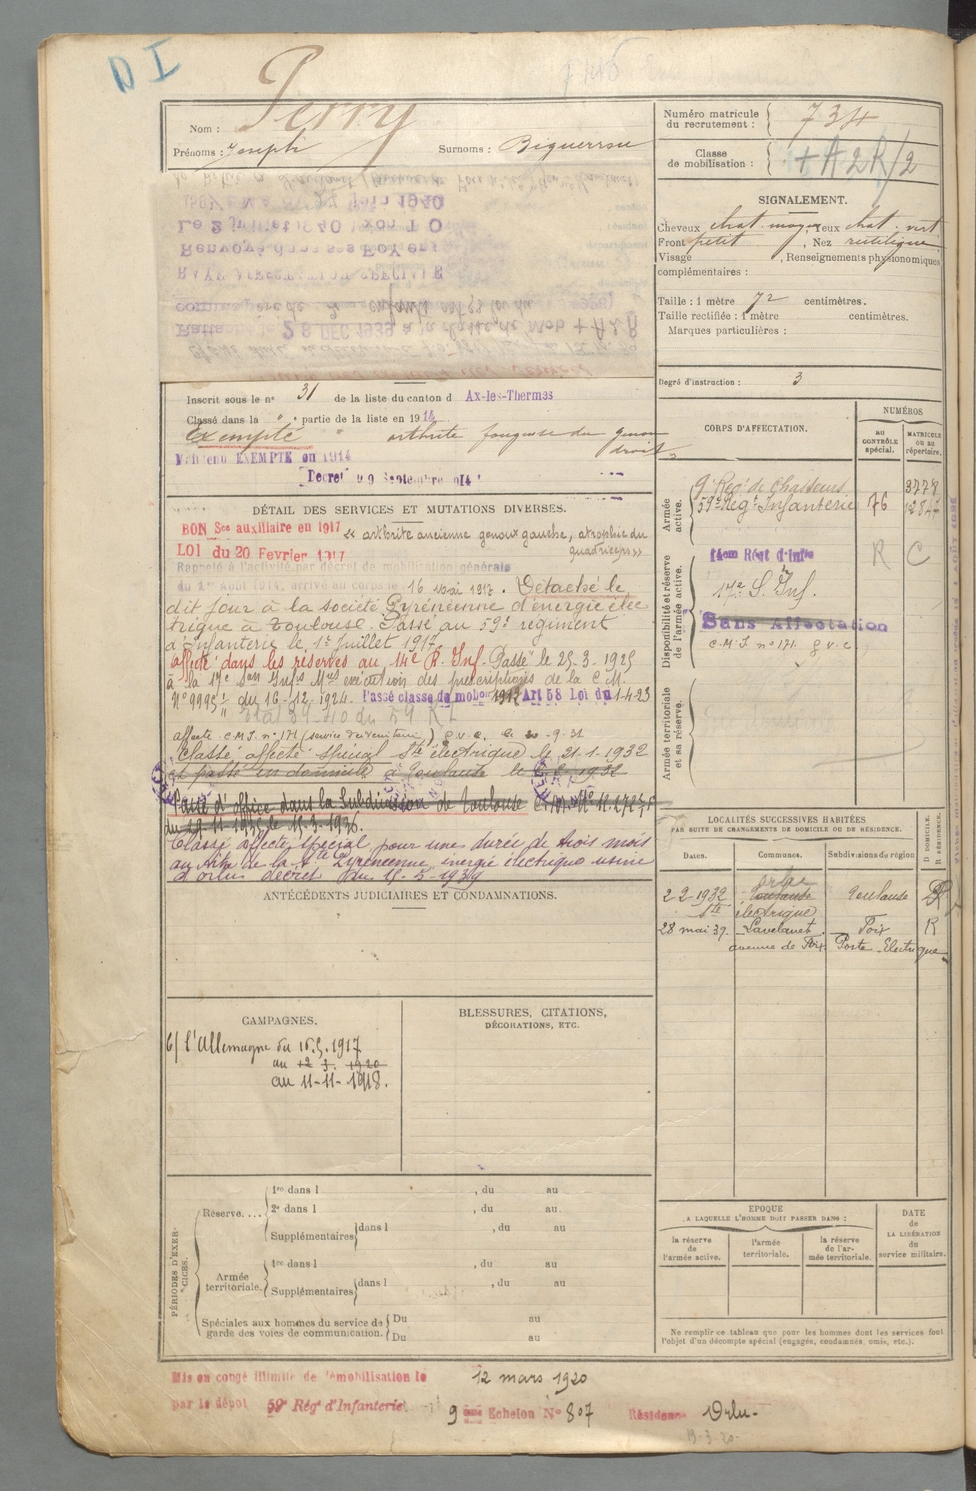 D I
Nom : Perry
Prénoms : Joseph Surnoms : Biguerrou
Numéro matricule du recrutement : 734
Classe de mobilisation : + A 2 R/2
SIGNALEMENT.
Cheveux chat. moyen, Yeux chat. vert
Front petit, Nez rectiligne
Visage , Renseignements physionomiques
complémentaires :
Taille : 1 mètre 72 centimètres.
Taille rectifiée : 1 mètre centimètres.
Marques particulières :
Degré d'instruction : 3
Le 2 juillet 1940
Renvoyé dans ses Foyers
RAYÉ AFFECTATION SPECIALE
comme père de 2 enfants
Rattaché le 28 DEC 1939 à la classe de Mob + A 2 R
Inscrit sous le no 31 de la liste du canton d Ax-les-Thermes
Classé dans la " " partie de la liste en 1914
Exempté arthrite fongueuse du genou
droit
Maintenu EXEMPTÉ en 1914
Décret 09 Septembre 1914
DÉTAIL DES SERVICES ET MUTATIONS DIVERSES.
BON Sce auxiliaire en 1917 « arthrite ancienne genoux gauche, atrophie du
LOI du 20 Fevrier 1917 quadriceps »
Rappelé à l'activité par décret de mobilisation générale
du 1er Août 1914, arrivé au corps le 16 mai 1917. Détaché le
dit jour à la société Pyrénéenne d'énergie élec
trique à Toulouse. Passé au 59e régiment
d'Infanterie le 1er Juillet 1917
affecté dans les réserves au 14e R. Inf. Passé le 25-3-1925
à la 17e Son Infrs Mres exécution des prescriptions de la C.M.
No 9995 du 16-12-1924. Passé classe de mobon 1912 Art 58 Loi du 1-4-23
affecté C.M.I. no 171 (service du territoire) g.v.c. le 20-9-31
Classé affecté spécial Sté électrique le 21-1-1932
et passé en domicile à Toulouse le 2-2-1932
Passé d'office dans la Subdivision de Toulouse
du 29-11-1935 le 15-3-1936.
Classé affecté spécial pour une durée de trois mois
au titre de la Sté Pyrénéenne énergie électrique usine
d'Orlu décret du 15-5-1939
ANTÉCÉDENTS JUDICIAIRES ET CONDAMNATIONS.
CAMPAGNES.
C/ l'Allemagne du 16.5.1917
au 12 3. 1920
au 11-11-1918.
BLESSURES, CITATIONS,
DÉCORATIONS, ETC.
PÉRIODES D'EXERCICES.
Réserve.... 1re dans l , du au
2e dans l , du au
Supplémentaires dans l , du au
Armée territoriale. 1re dans l , du au
Supplémentaires dans l , du au
Spéciales aux hommes du service de garde des voies de communication. Du au
Du au
CORPS D'AFFECTATION.
NUMÉROS
AU CONTRÔLE spécial.
MATRICULE ou au répertoire.
Armée active.
9e Régt de Chasseurs 3778
59e Régt Infanterie 76 12847
Disponibilité et réserve de l'armée active.
14em Régt d'Infie R C
17e S. Inf.
Sans Affectation
C.M.I. no 171. g.v.c
Armée territoriale et sa réserve.
LOCALITÉS SUCCESSIVES HABITÉES
PAR SUITE DE CHANGEMENTS DE DOMICILE OU DE RÉSIDENCE.
Dates. Communes. Subdivisions de région D. DOMICILE. R. RÉSIDENCE.
Orlu
2 2 1932 Toulouse Toulouse R
Sté électrique
28 mai 39. Lavelanet. Foix R
avenue de Foix. Poste Electrique
EPOQUE
A LAQUELLE L'HOMME DOIT PASSER DANS :
la réserve de l'armée active.
l'armée territoriale.
la réserve de l'armée territoriale.
DATE de LA LIBÉRATION du service militaire.
Ne remplir ce tableau que pour les hommes dont les services font
l'objet d'un décompte spécial (engagés, condamnés, omis, etc.).
Mis en congé illimité de démobilisation le 12 mars 1920
par le dépôt 59e Rég d'Infanterie 9 ème Echelon No 807 Résidence Orlu.
13-3-20-